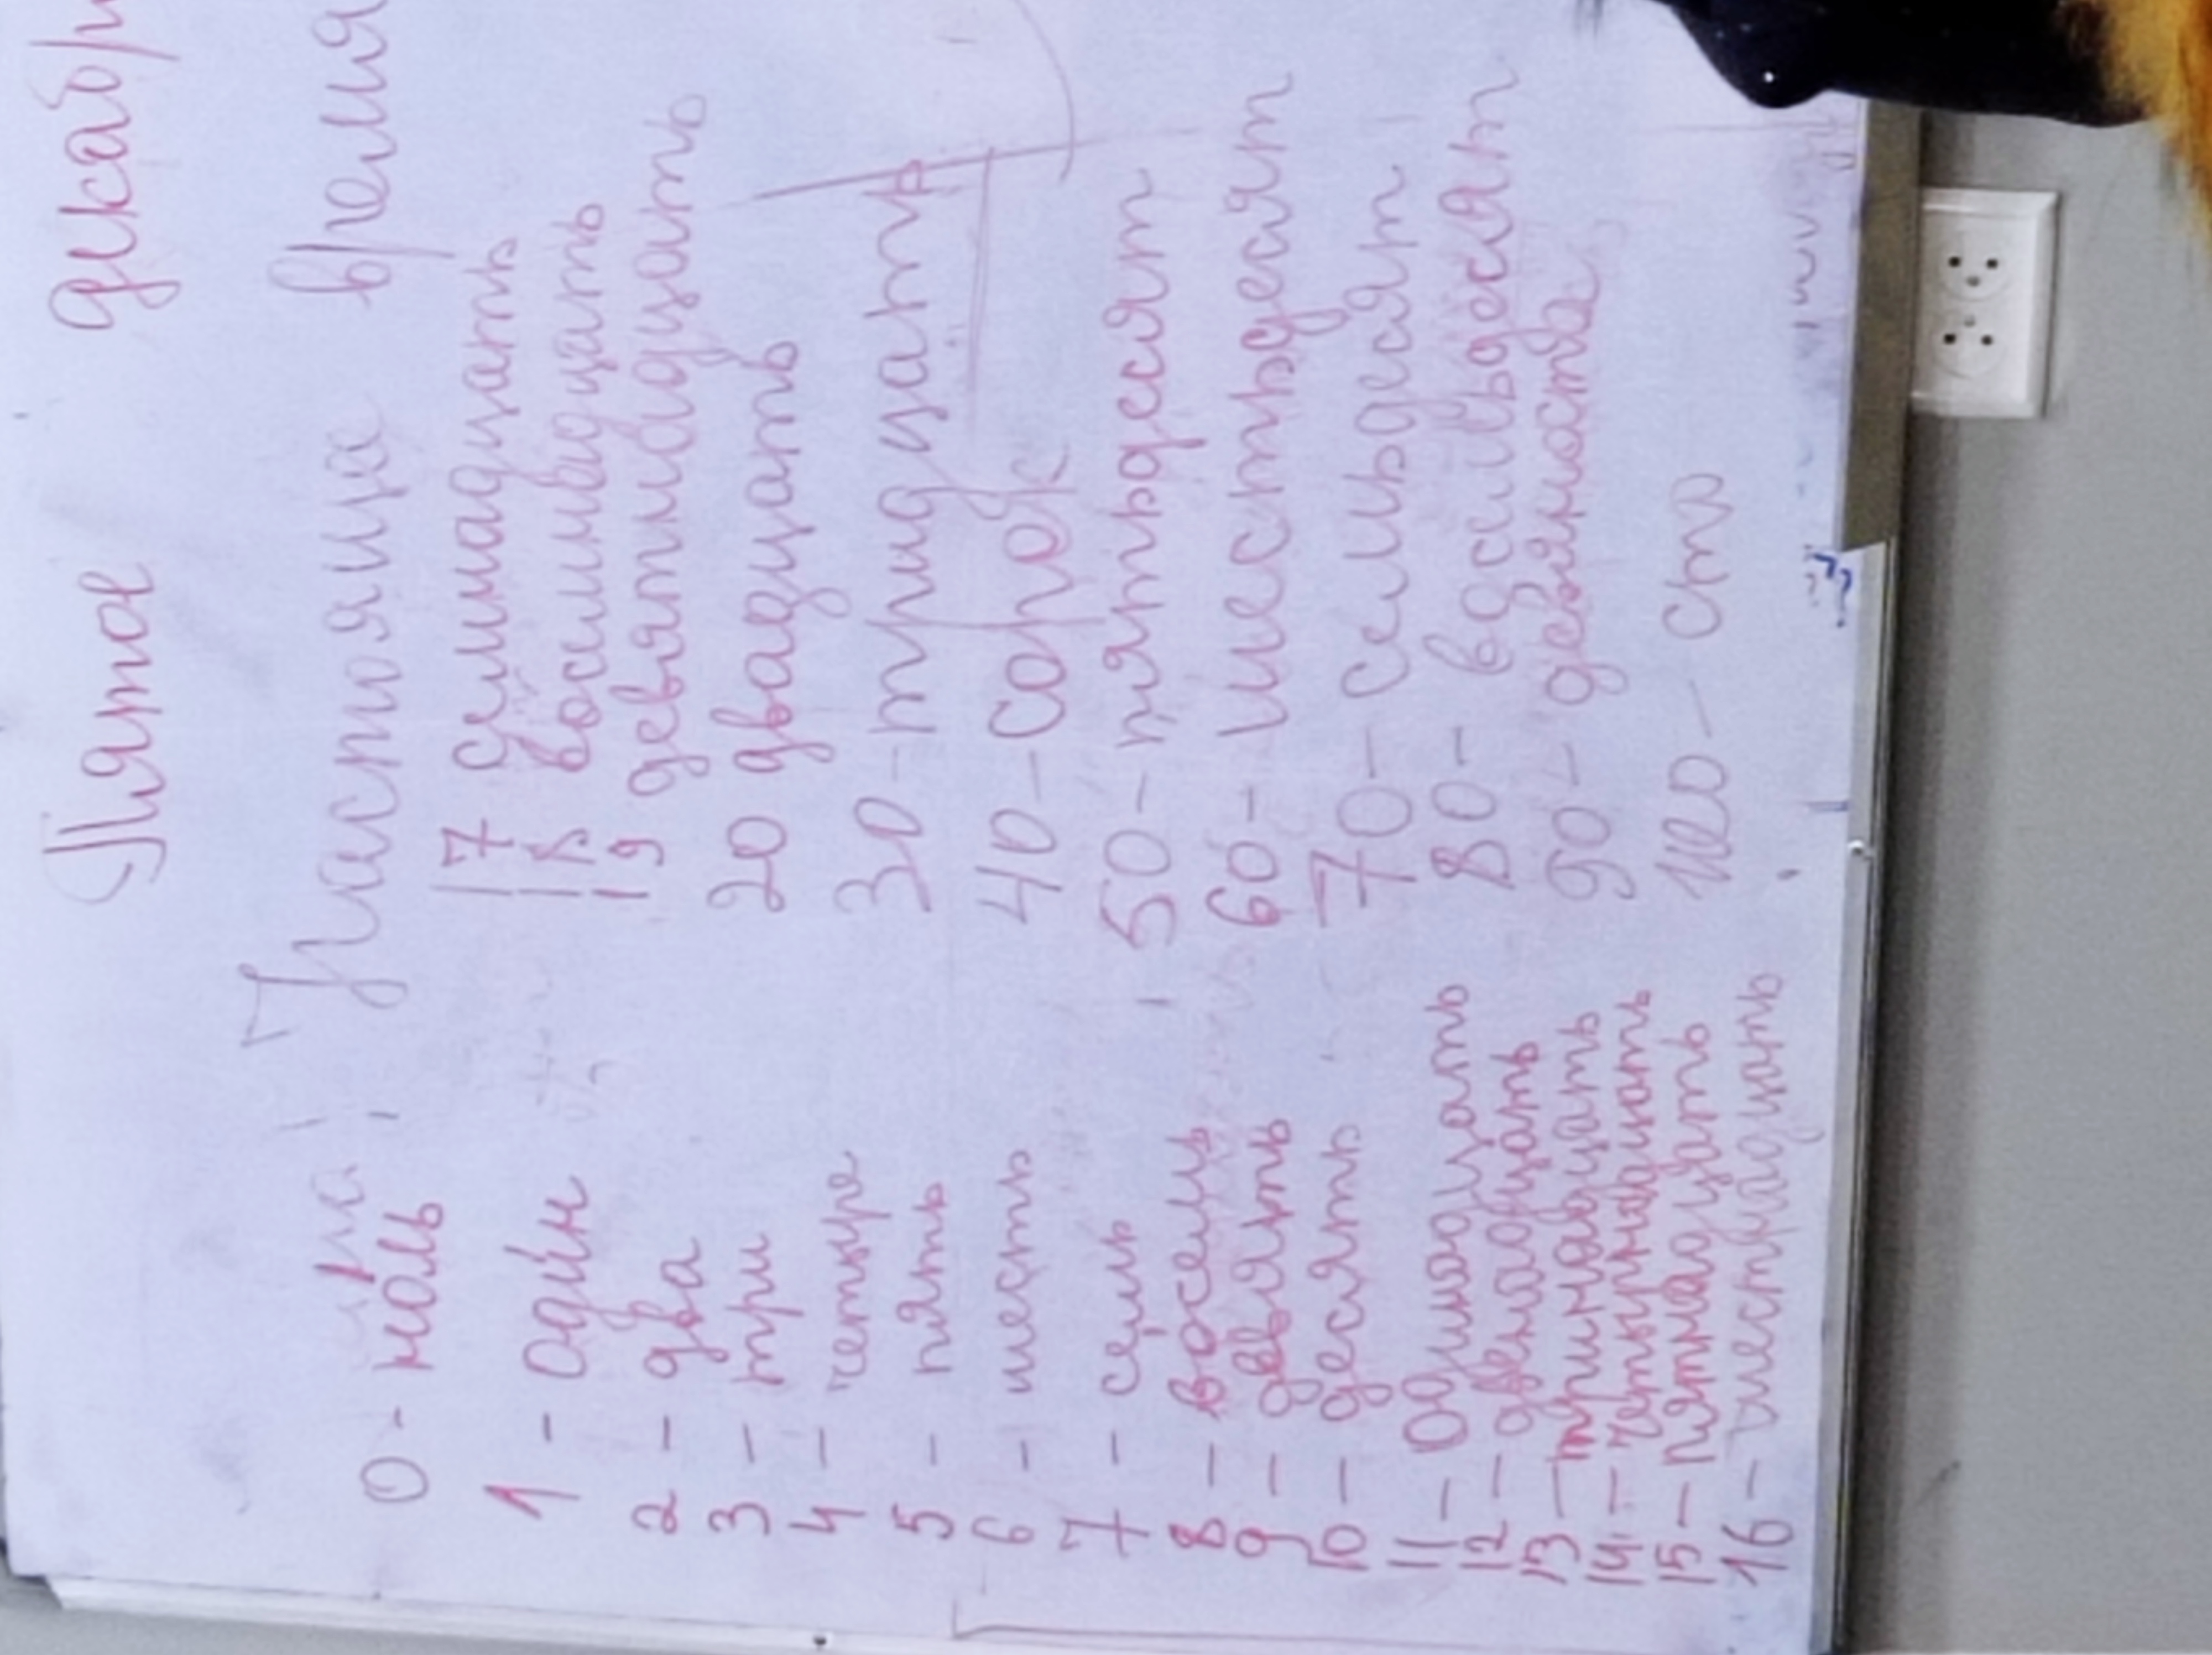 Пятое декабр
Настояще время
0 - ноль
1 - оди́н
2 - два
3 - три
4 - четыре
5 - пять
6 - шесть
7 - семь
8 - восемь
9 - девять
10 - десять
11 - Одинадцать
12 - двенадцать
13 - тринадцать
14 - четырнадцать
15 - пятнадцать
16 - шестнадцать
17 семнадцать
18 восемнадцать
19 девятнадцать
20 двадцать
30 - тридцать
40 - сорок
50 - пятьдесят
60 - шестьдесят
70 - семьдесят
80 - восемьдесят
90 - девяноста
100 - сто